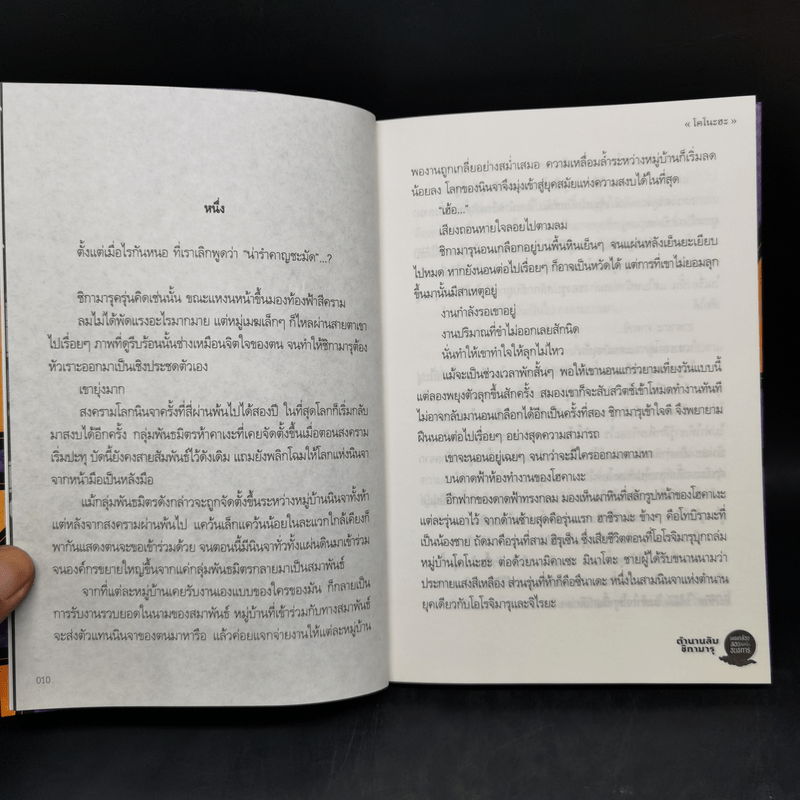 หนึ่ง
ตั้งแต่เมื่อไรกันหนอ ที่เราเลิกพูดว่า "น่ารำคาญชะมัด"...?
ชิกามารุครุ่นคิดเช่นนั้น ขณะแหงนหน้าขึ้นมองท้องฟ้าสีคราม
ลมไม่ได้พัดแรงอะไรมากมาย แต่หมู่เมฆเล็กๆ ก็ไหลผ่านสายตาเขา
ไปเรื่อยๆ ภาพที่ดูรีบร้อนนั้นช่างเหมือนจิตใจของตน จนทำให้ชิกามารุต้อง
หัวเราะออกมาเป็นเชิงประชดตัวเอง
เขายุ่งมาก
สงครามโลกนินจาครั้งที่สี่ผ่านพ้นไปได้สองปี ในที่สุดโลกก็เริ่มกลับ
มาสงบได้อีกครั้ง กลุ่มพันธมิตรห้าคาเงะที่เคยจัดตั้งขึ้นเมื่อตอนสงคราม
เริ่มปะทุ บัดนี้ยังคงสายสัมพันธ์ไว้ดังเดิม แถมยังพลิกโฉมให้โลกแห่งนินจา
จากหน้ามือเป็นหลังมือ
แม้กลุ่มพันธมิตรดังกล่าวจะถูกจัดตั้งขึ้นระหว่างหมู่บ้านนินจาทั้งห้า
แต่หลังจากสงครามผ่านพ้นไป แคว้นเล็กแคว้นน้อยในละแวกใกล้เคียงก็
พากันแสดงตนจะขอเข้าร่วมด้วย จนตอนนี้มีนินจาทั่วทั้งแผ่นดินมาเข้าร่วม
จนองค์กรขยายใหญ่ขึ้นจากแค่กลุ่มพันธมิตรกลายมาเป็นสมาพันธ์
จากที่แต่ละหมู่บ้านเคยรับงานเองแบบของใครของมัน ก็กลายเป็น
การรับงานรวบยอดในนามของสมาพันธ์ หมู่บ้านที่เข้าร่วมกับทางสมาพันธ์
จะส่งตัวแทนนินจาของตนมาหารือ แล้วค่อยแจกจ่ายงานให้แต่ละหมู่บ้าน
010
« โคโนะฮะ »
พองานถูกเกลี่ยอย่างสม่ำเสมอ ความเหลื่อมล้ำระหว่างหมู่บ้านก็เริ่มลด
น้อยลง โลกของนินจาจึงมุ่งเข้าสู่ยุคสมัยแห่งความสงบได้ในที่สุด
"เฮ้อ..."
เสียงถอนหายใจลอยไปตามลม
ชิกามารุนอนเกลือกอยู่บนพื้นหินเย็นๆ จนแผ่นหลังเย็นยะเยียบ
ไปหมด หากยังนอนต่อไปเรื่อยๆ ก็อาจเป็นหวัดได้ แต่การที่เขาไม่ยอมลุก
ขึ้นมานั้นมีสาเหตุอยู่
งานกำลังรอเขาอยู่
งานปริมาณที่ขำไม่ออกเลยสักนิด
นั่นทำให้เขาทำใจให้ลุกไม่ไหว
แม้จะเป็นช่วงเวลาพักสั้นๆ พอให้เขานอนแกร่วยามเที่ยงวันแบบนี้
แต่ลองพยุงตัวลุกขึ้นสักครั้ง สมองเขาก็จะสับสวิตช์เข้าโหมดทำงานทันที
ไม่อาจกลับมานอนเกลือกได้อีกเป็นครั้งที่สอง ชิกามารุเข้าใจดี จึงพยายาม
ฝืนนอนต่อไปเรื่อยๆ อย่างสุดความสามารถ
เขาจะนอนอยู่เฉยๆ จนกว่าจะมีใครออกมาตามหา
บนดาดฟ้าห้องทำงานของโฮคาเงะ
อีกฟากของดาดฟ้าทรงกลม มองเห็นผาหินที่สลักรูปหน้าของโฮคาเงะ
แต่ละรุ่นเอาไว้ จากด้านซ้ายสุดคือรุ่นแรก ฮาชิรามะ ข้างๆ คือโทบิรามะที่
เป็นน้องชาย ถัดมาคือรุ่นที่สาม ฮิรุเซ็น ซึ่งเสียชีวิตตอนที่โอโรจิมารุบุกถล่ม
หมู่บ้านโคโนะฮะ ต่อด้วยนามิคาเซะ มินาโตะ ชายผู้ได้รับขนานนามว่า
ประกายแสงสีเหลือง ส่วนรุ่นที่ห้าก็คือซึนาเดะ หนึ่งในสามนินจาแห่งตำนาน
ยุคเดียวกับโอโรจิมารุและจิไรยะ
ตำนานลับ
ชิกามารุ